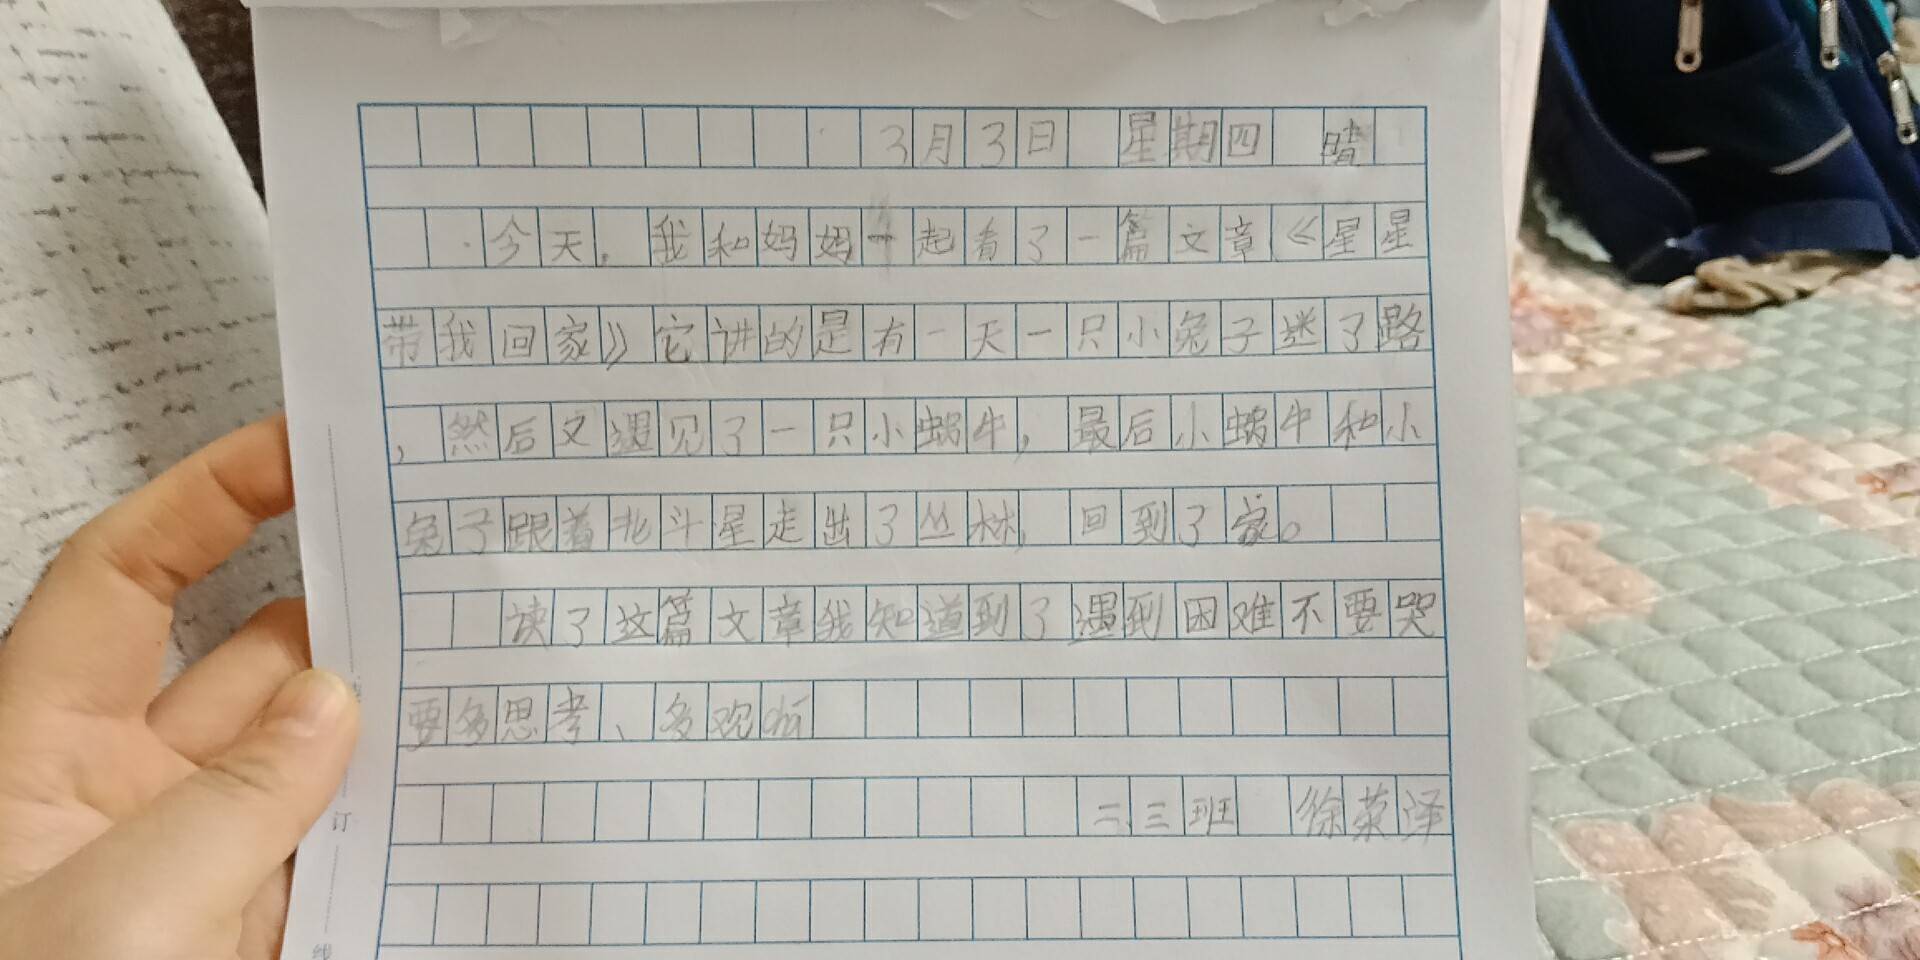 3月3日 星期四 晴
今天，我和妈妈一起看了一篇文章《星星
带我回家》它讲的是有一天一只小兔子迷了路
，然后又遇见了一只小蜗牛，最后小蜗牛和小
兔子跟着北斗星走出了丛林，回到了家。
读了这篇文章我知道到了遇到困难不要哭
要多思考、多观
二、三班 徐荣泽
订
线